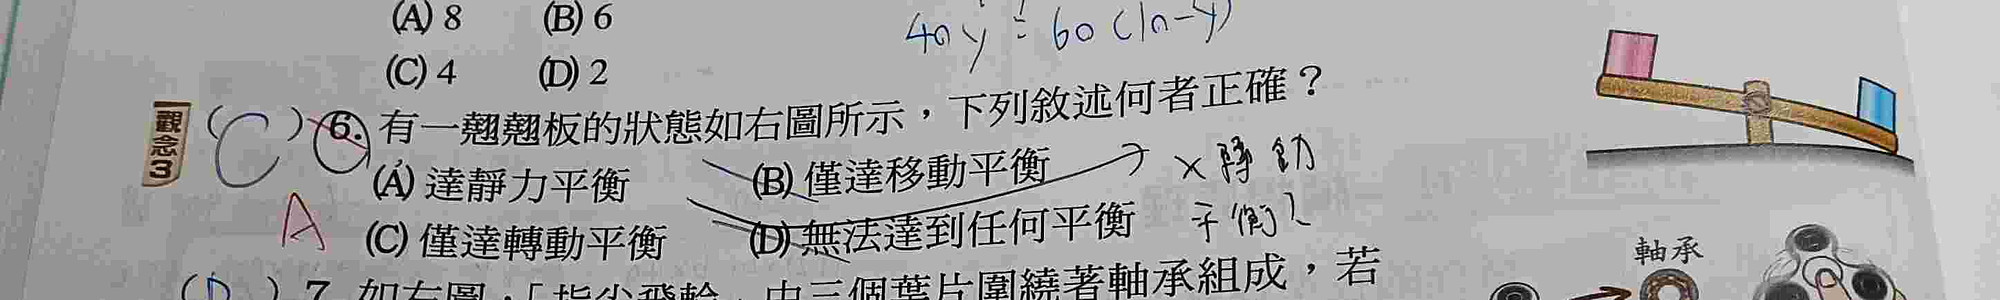 (A) 8 (B) 6
(C) 4 (D) 2
40y = 60(10-y)
觀念3 (C) 6. 有一翹翹板的狀態如右圖所示，下列敘述何者正確？
(A) 達靜力平衡 (B) 僅達移動平衡
A (C) 僅達轉動平衡 (D) 無法達到任何平衡
軸承
(D) 7. 如右圖，「指尖飛輪」由三個葉片圍繞著軸承組成，若